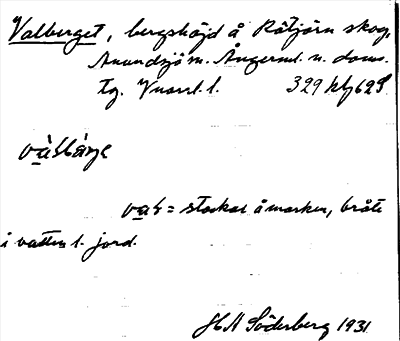 Valberget, bergshöjd å Rötjärn skog,
Anundsjö sn. Ångerml. n. doms.
tg. Vnorrl. l. 329
vàlbärje
val = stockar å marken, bråte
i vatten l. jord.
H A Söderberg 1931